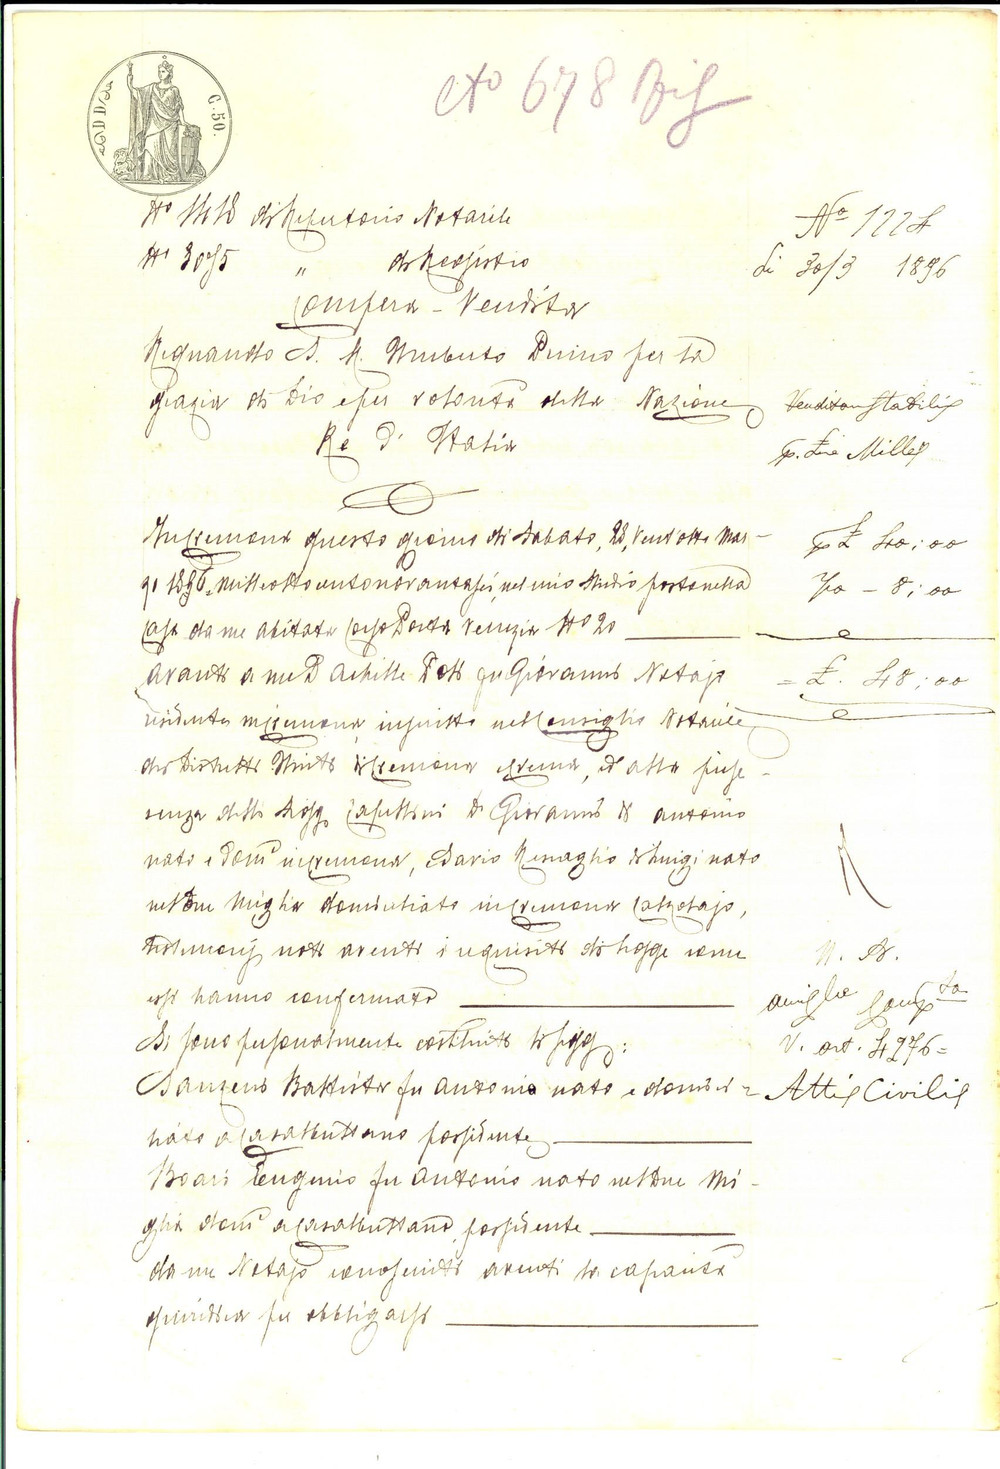 C. 50.
No 678 Bis
di Repertorio Notarile
No 3095 " di Registro
Compera - Vendita
Regnando S. M. Umberto Primo per la
grazia di Dio e per volontà della Nazione
Re d'Italia
In Cremona questo giorno di Sabato, 28, Vent'otto Mar-
zo 1896, milleottocentonovantasei, nel mio Studio posto nella
casa da me abitata Corso Porta Venezia No 20
avanti a me D. Achille Poti fu Giovanni Notajo
residente in Cremona, inscritto nel Consiglio Notarile
dei Distretti Uniti di Cremona e Crema, ed alla pre-
senza delli Sigg. Giovanni di Antonio
nato e domto in Cremona, Dario di Luigi nato
nel Due Miglia domiciliato in Cremona Calzolajo,
testimonj noti aventi i requisiti di legge come
essi hanno confermato
Si sono personalmente costituiti li Sigg:
Battista fu Antonio nato e domici=
liato a Casalbuttano possidente
Boari Eugenio fu Antonio nato nel Due Mi-
glia domto a Casalbuttano, possidente
da me Notajo conosciuti aventi la capacità
giuridica per obbligarsi
No 1224
Li 30/3 1896
Vendita Stabili
p. Lire Mille
p £ 40:00
- 8:00
= £. 48:00
V. art. 4276=
Atti Civili